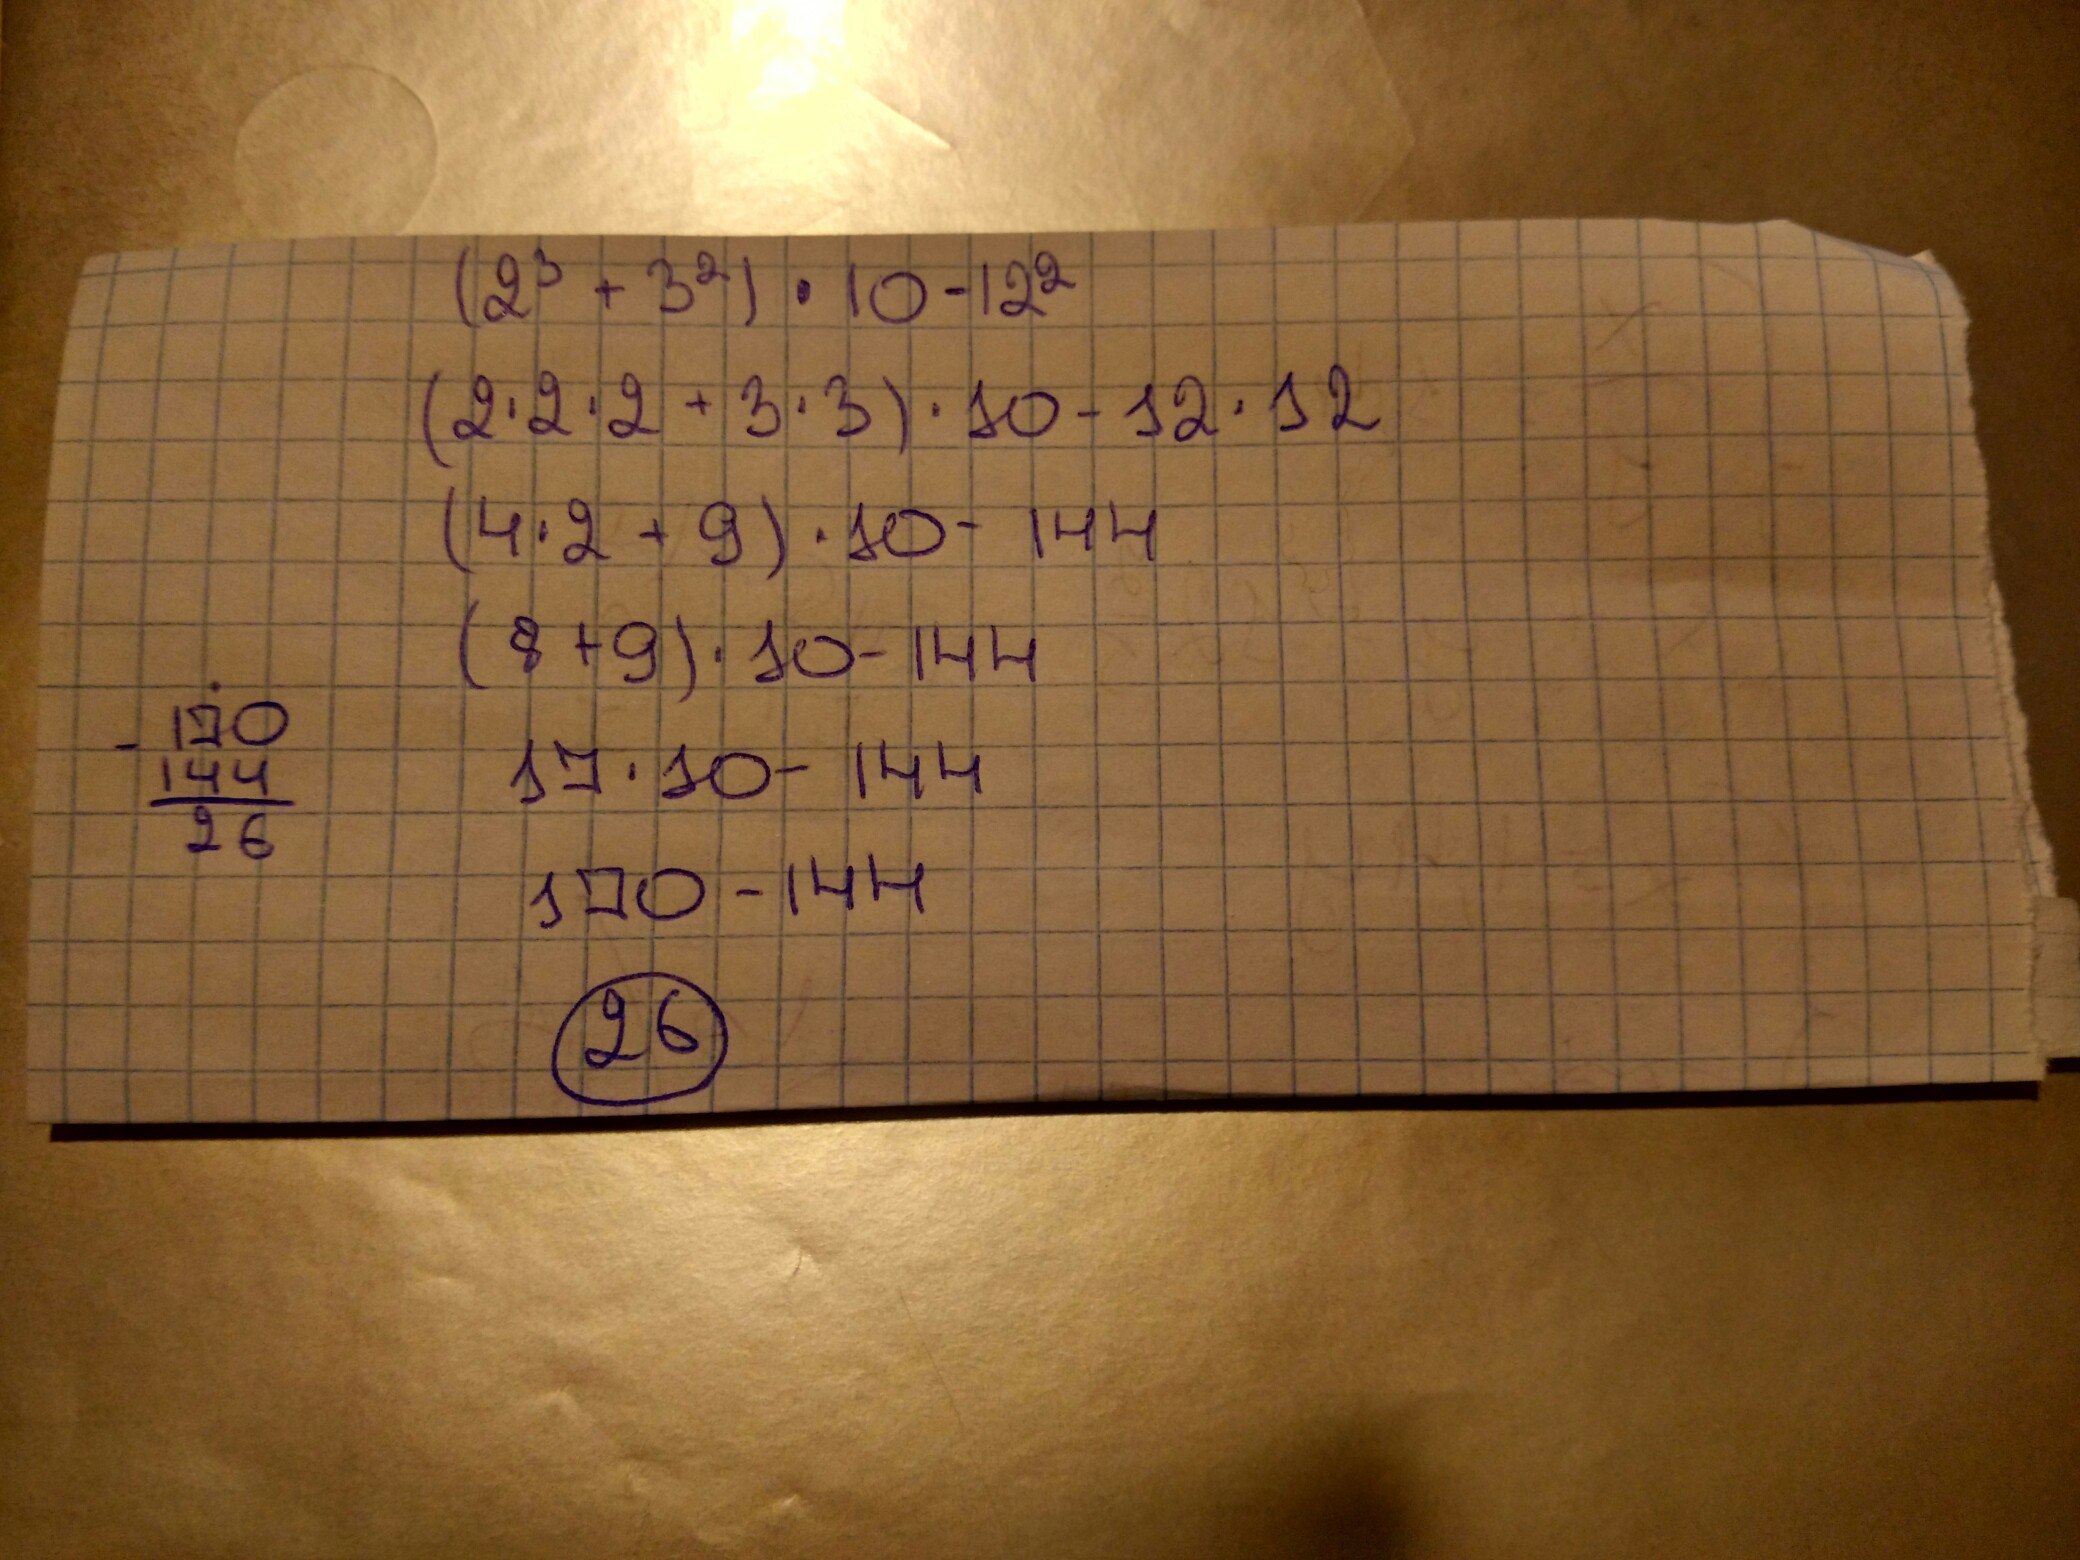 (2³ + 3²) · 10 - 12²
(2 · 2 · 2 + 3 · 3) · 10 - 12 · 12
(4 · 2 + 9) · 10 - 144
(8 + 9) · 10 - 144
17 · 10 - 144
170 - 144
26
- 170
144
26